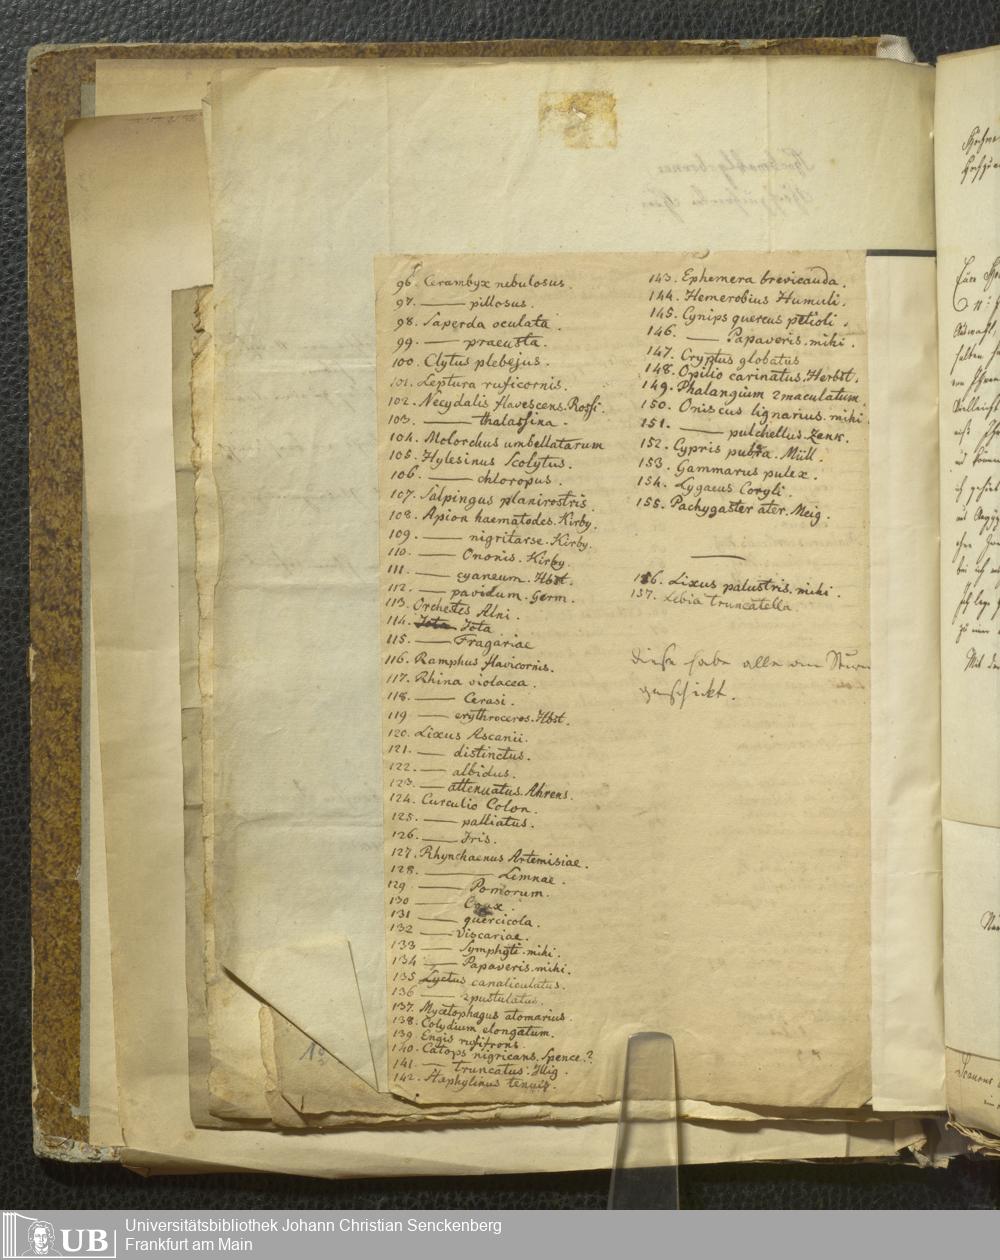 96. Cerambyx nebulosus.
97. —— pillosus.
98. Saperda oculata.
99. —— praeusta.
100. Clytus plebejus.
101. Leptura ruficornis.
102. Necydalis flavescens. Rossi.
103. —— thalassina.
104. Molorchus umbellatarum
105. Hylesinus Scolytus.
106. —— chloropus.
107. Salpingus planirostris.
108. Apion haematodes. Kirby.
109. —— nigritarse. Kirby.
110. —— Ononis. Kirby.
111. —— cyaneum. Hbst.
112. —— pavidum. Germ.
113. Orchestes Alni.
114. Jota
115. —— Fragariae
116. Ramphus flavicornis.
117. Rhina violacea.
118. —— Cerasi.
119 —— erythroceros. Hbst.
120. Lixus Ascanii.
121. —— distinctus.
122. —— albidus.
123. —— attenuatus. Ahrens.
124. Curculio Colon.
125. —— palliatus.
126. —— Iris.
127. Rhynchaenus Artemisiae.
128. —— Lemnae.
129 —— Pomorum.
130 ——
131 —— quercicola.
132 —— Viscariae.
133 —— Symphyti. mihi.
134 —— Papaveris. mihi.
135 Lyctus canaliculatus.
136 —— 2pustulatus.
137. Mycetophagus atomarius.
138. Colydium elongatum.
139. Engis rufifrons.
140. Catops nigricans. Spence.?
141. —— truncatus. Illig.
142. Staphylinus tenuis.
143. Ephemera brevicauda.
144. Hemerobius Humuli.
145. Cynips quercus petioli.
146. —— Papaveris. mihi.
147. Cryptus globatus
148. Opilio carinatus. Herbst.
149. Phalangium 2maculatum.
150. Oniscus lignarius. mihi.
151. —— pulchellus. Zenk.
152. Cypris pubera. Müll.
153. Gammarus pulex.
154. Lygaeus Coryli.
155. Pachygaster ater. Meig.
156. Lixus palustris. mihi.
157. Lebia truncatella.
Diese habe alle an Sturm
geschickt.
UB
Universitätsbibliothek Johann Christian Senckenberg
Frankfurt am Main